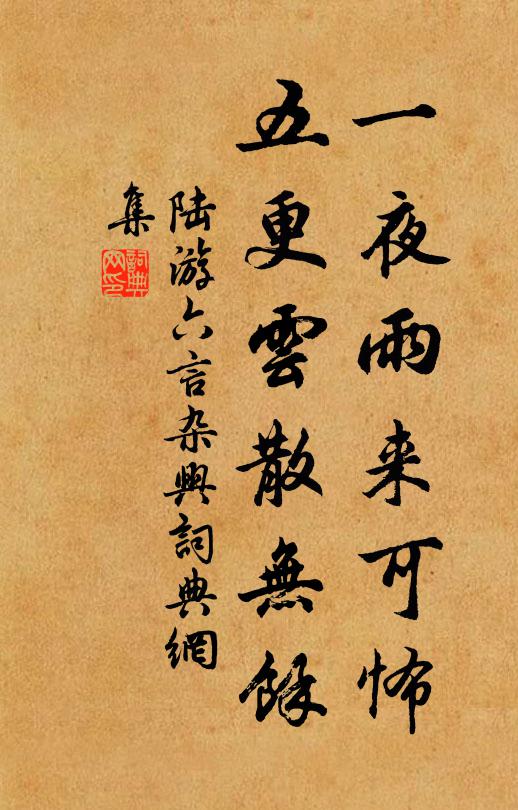 一夜雨来可怖
五更雲散無餘
陆游六言杂興詞典網
集
詞典
网印